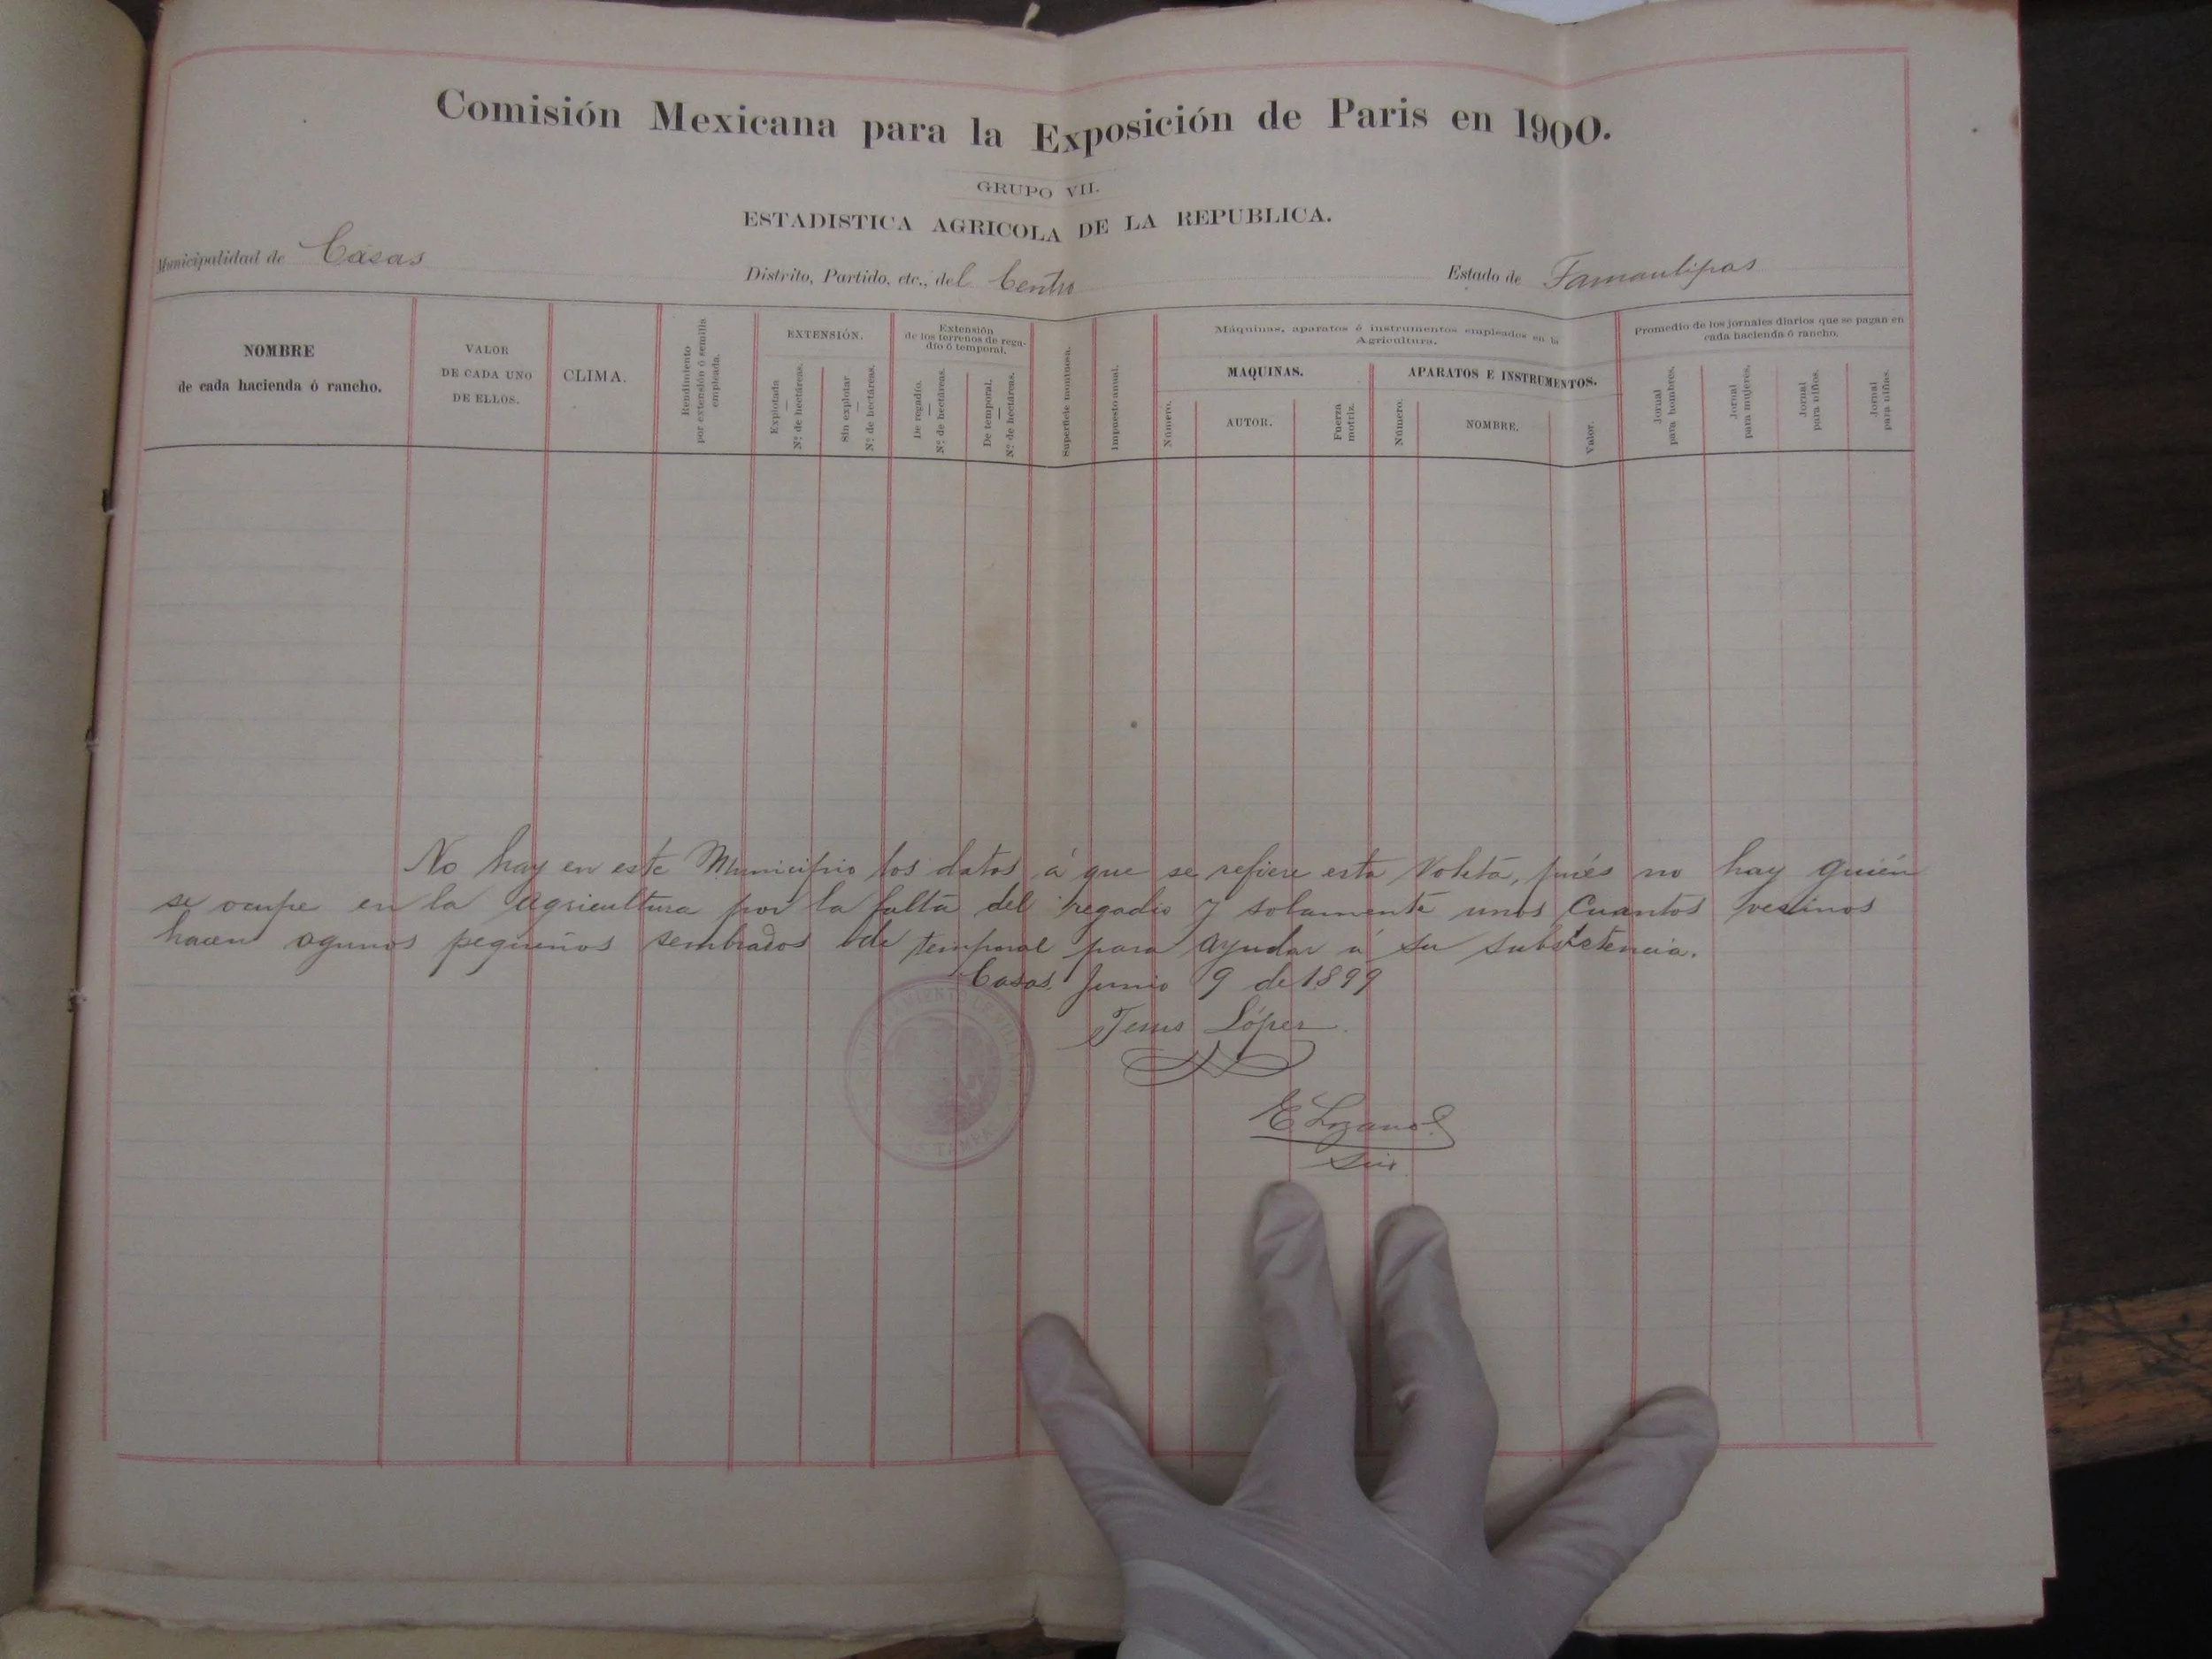 Comisión Mexicana para la Exposición de Paris en 1900.
GRUPO VII.
ESTADISTICA AGRICOLA DE LA REPUBLICA.
Municipalidad de Casas Distrito, Partido, etc., del Centro Estado de Tamaulipas
NOMBRE
de cada hacienda ó rancho.
VALOR
DE CADA UNO
DE ELLOS.
CLIMA.
Rendimiento
por extensión ó semilla
empleada.
EXTENSIÓN.
Explotada
—
Nº. de hectáreas.
Sin explotar
—
Nº. de hectáreas.
Extensión
de los terrenos de rega-
dío ó temporal.
De regadío.
—
Nº. de hectáreas.
De temporal.
—
Nº. de hectáreas.
Superficie montuosa.
Impuesto anual.
Máquinas, aparatos é instrumentos empleados en la
Agricultura.
MAQUINAS.
Número.
AUTOR.
Fuerza
motriz.
APARATOS E INSTRUMENTOS.
Número.
NOMBRE.
Valor.
Promedio de los jornales diarios que se pagan en
cada hacienda ó rancho.
Jornal
para hombres.
Jornal
para mujeres.
Jornal
para niños.
Jornal
para niñas.
No hay en este Municipio los datos á que se refiere esta Voleta, pués no hay quién
se ocupe en la agricultura por la falta del regadio y solamente unos Cuantos vecinos
hacen agunos pequeños sembrados de temporal para ayudar á su subsistencia.
Casas Junio 9 de 1899
Jesus López.
E. Lozano
Srio